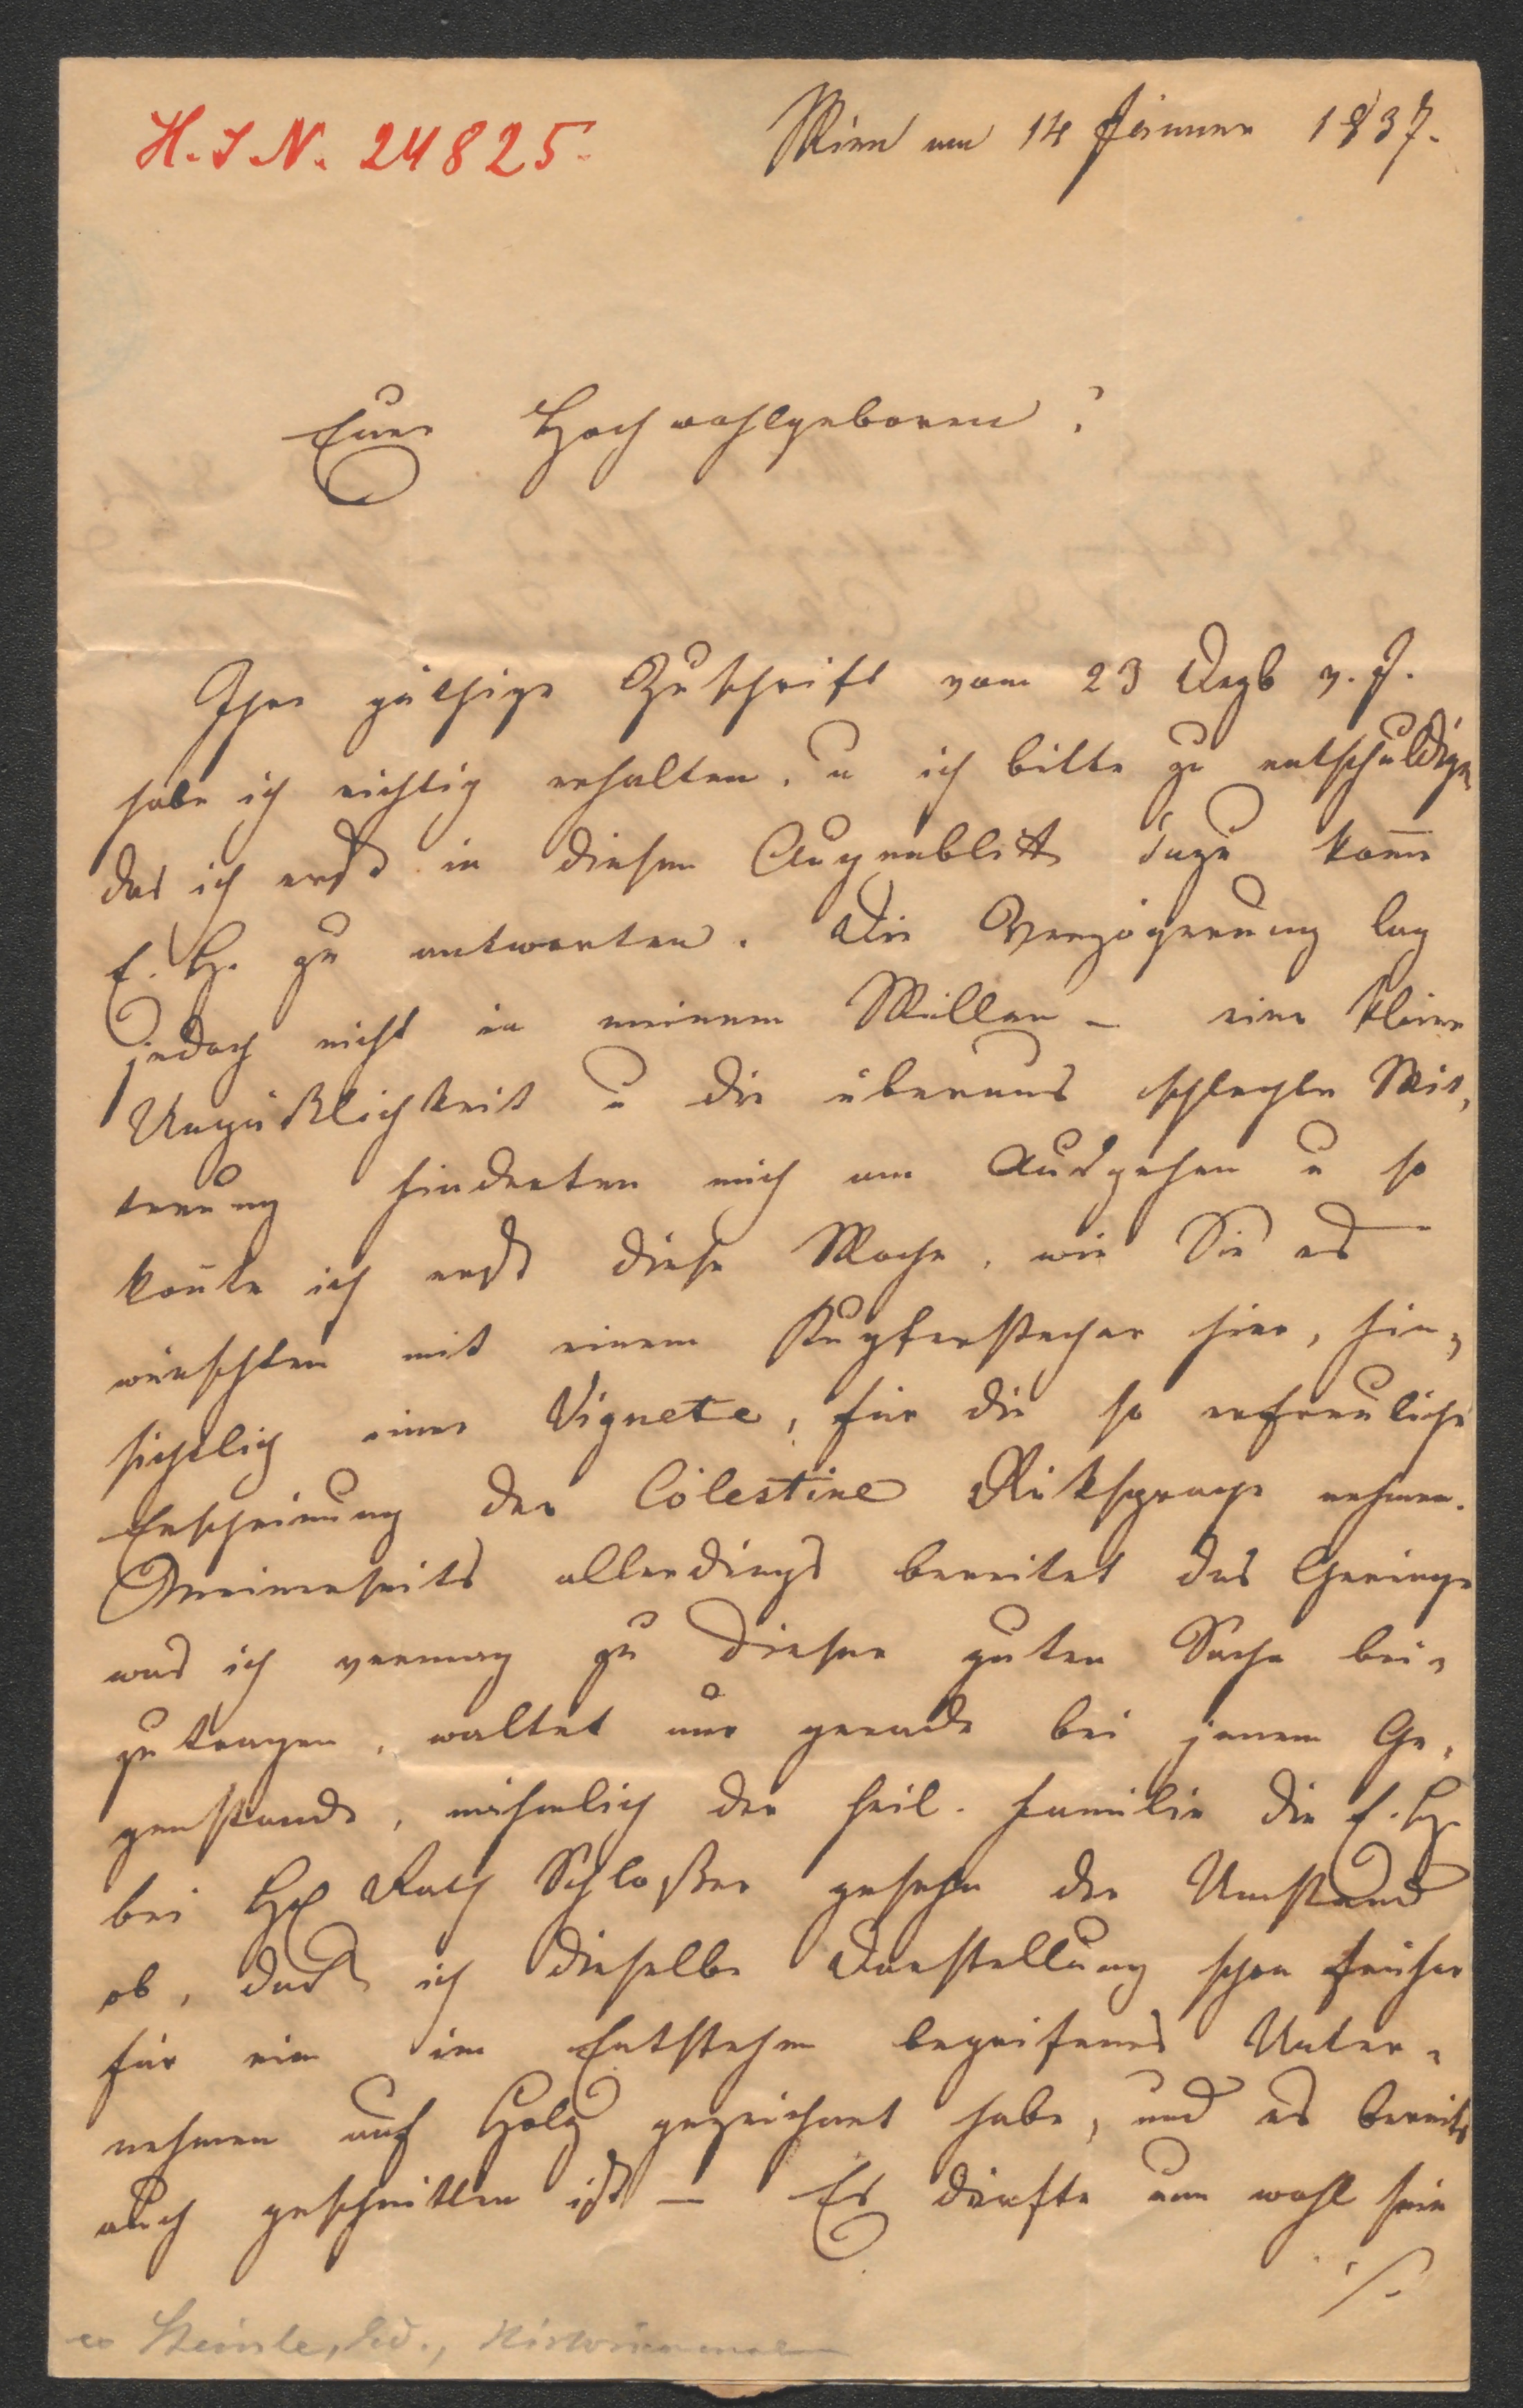 H. I. N. 24825.
Wien am 14 Jänner 1837.
Euer Hochwohlgeboren!
Ihre güthige Zuschrift vom 23 Dezb v. J.
habe ich richtig erhalten, u ich bitte zu entschuldigen
das ich erst in diesem Augenblikk dazu kome
E. H. zu antworten. Die Verzögerung lag
jedoch nicht in meinem Willen – eine kleine
Unpäßlichkeit u die überaus schlechte Wit,
terung hinderten mich am Ausgehen u so
konte ich erst diese Woche, wie Sie es
wünschten mit einem Kupferstecher hier, hin,
sichtlich einer Vignete, für die so erfreuliche
Erscheinung der Cölestine Rüksprache nehmen.
Meinerseits allerdings bereitet das Geringe
was ich vermag zu dieser guten Sache bei,
zutragen, waltet nur gerade bei jenem Ge,
genstande, nähmlich der heil. Familie die E. H.
bei H Rath Schloßer gesehn der Umstand
ob, daß ich dieselbe Darstellung schon früher
für ein im Entstehen begrifenes Unter,
nehmen auf Holz gezeichnet habe, und es bereits
auch geschnitten ist – Es dürfte nun wohl sein
./.
Steinle, Ed., Historienmaler